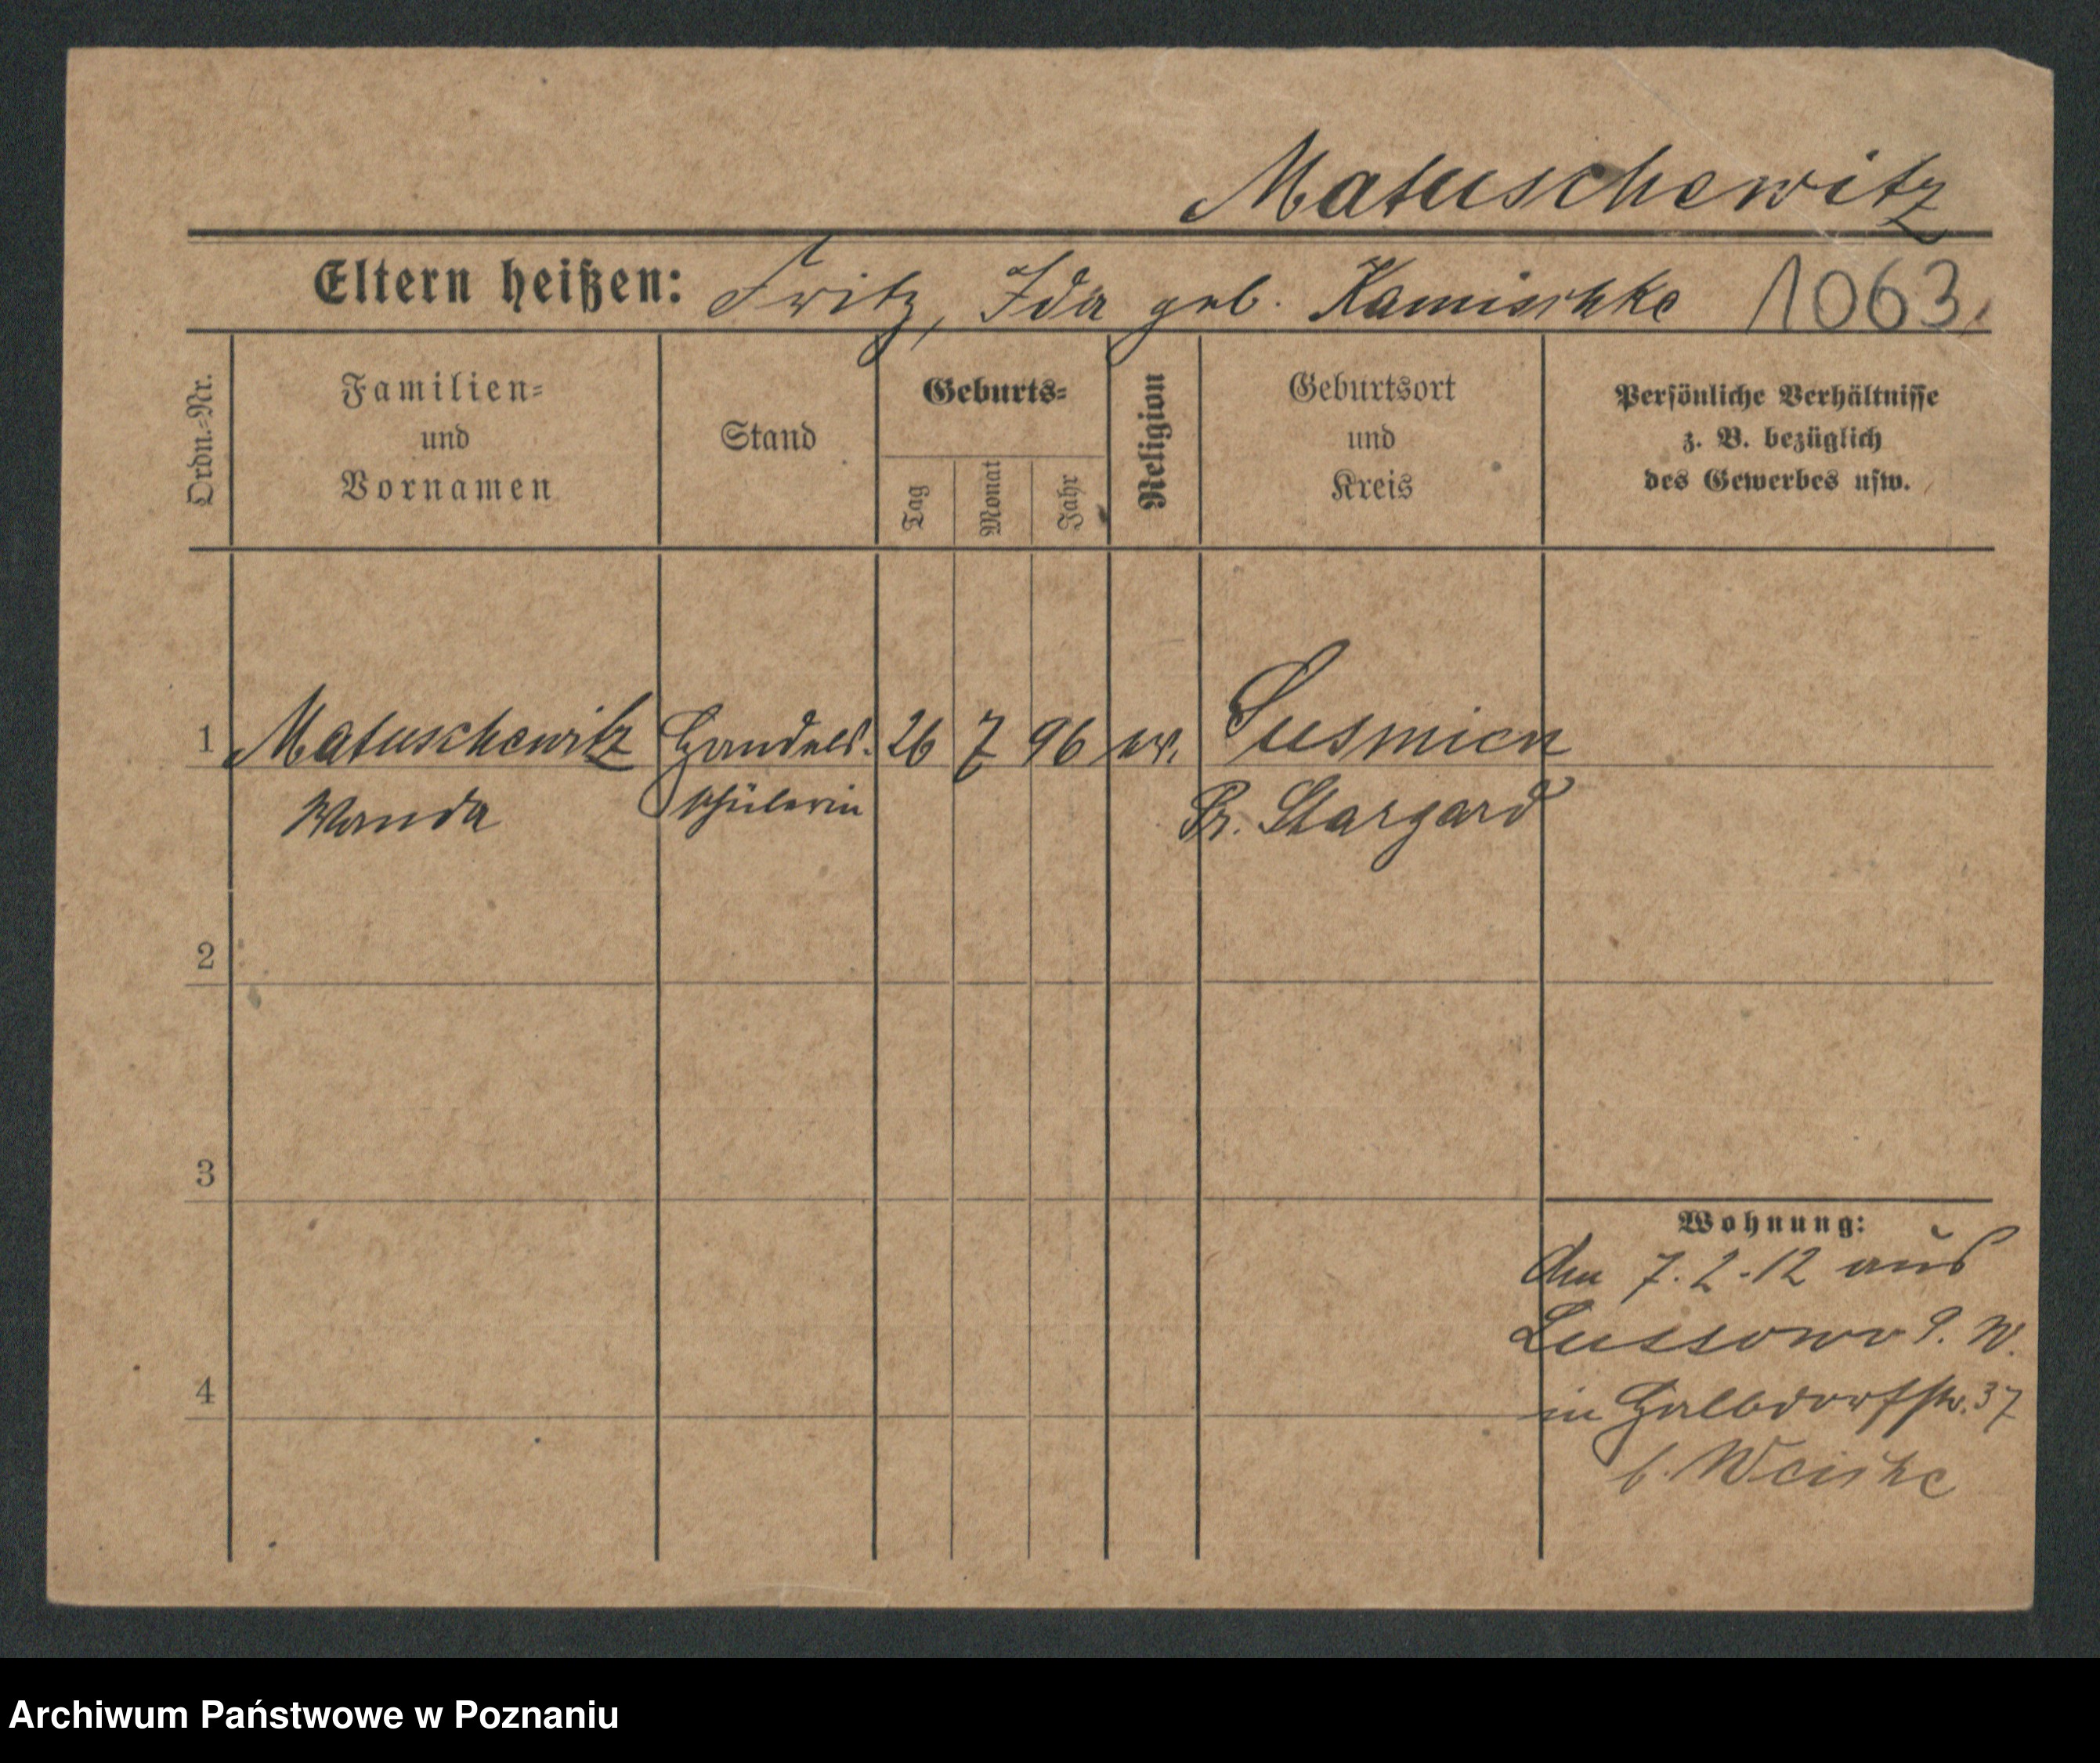 Matuschewitz
Eltern heißen: Fritz, Ida geb. Kamischke 1063
Ordn.-Nr.
Familien-
und
Vornamen
Stand
Geburts-
Tag
Monat
Jahr
Religion
Geburtsort
und
Kreis
Persönliche Verhältnisse
z. B. bezüglich
des Gewerbes usw.
1 Matuschewitz Handels- 26 7 96 ev. Susmien
Wanda schülerin Pr. Stargard
2
3
4
Wohnung:
Am 7.2.12 aus
Lussowo P. W.
in Halbdorfstr. 37
b. Weiske
Archiwum Państwowe w Poznaniu